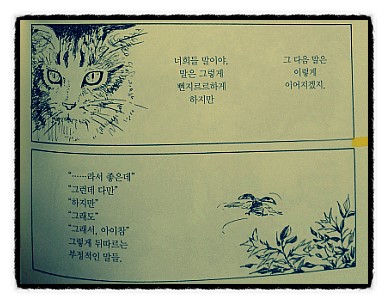 너희들 말이야,
말은 그렇게
뻔지르르하게
하지만
그 다음 말은
이렇게
이어지겠지,
"……라서 좋은데"
"그런데 다만"
"하지만"
"그래도"
"그래서, 아이참"
그렇게 뒤따르는
부정적인 말들,